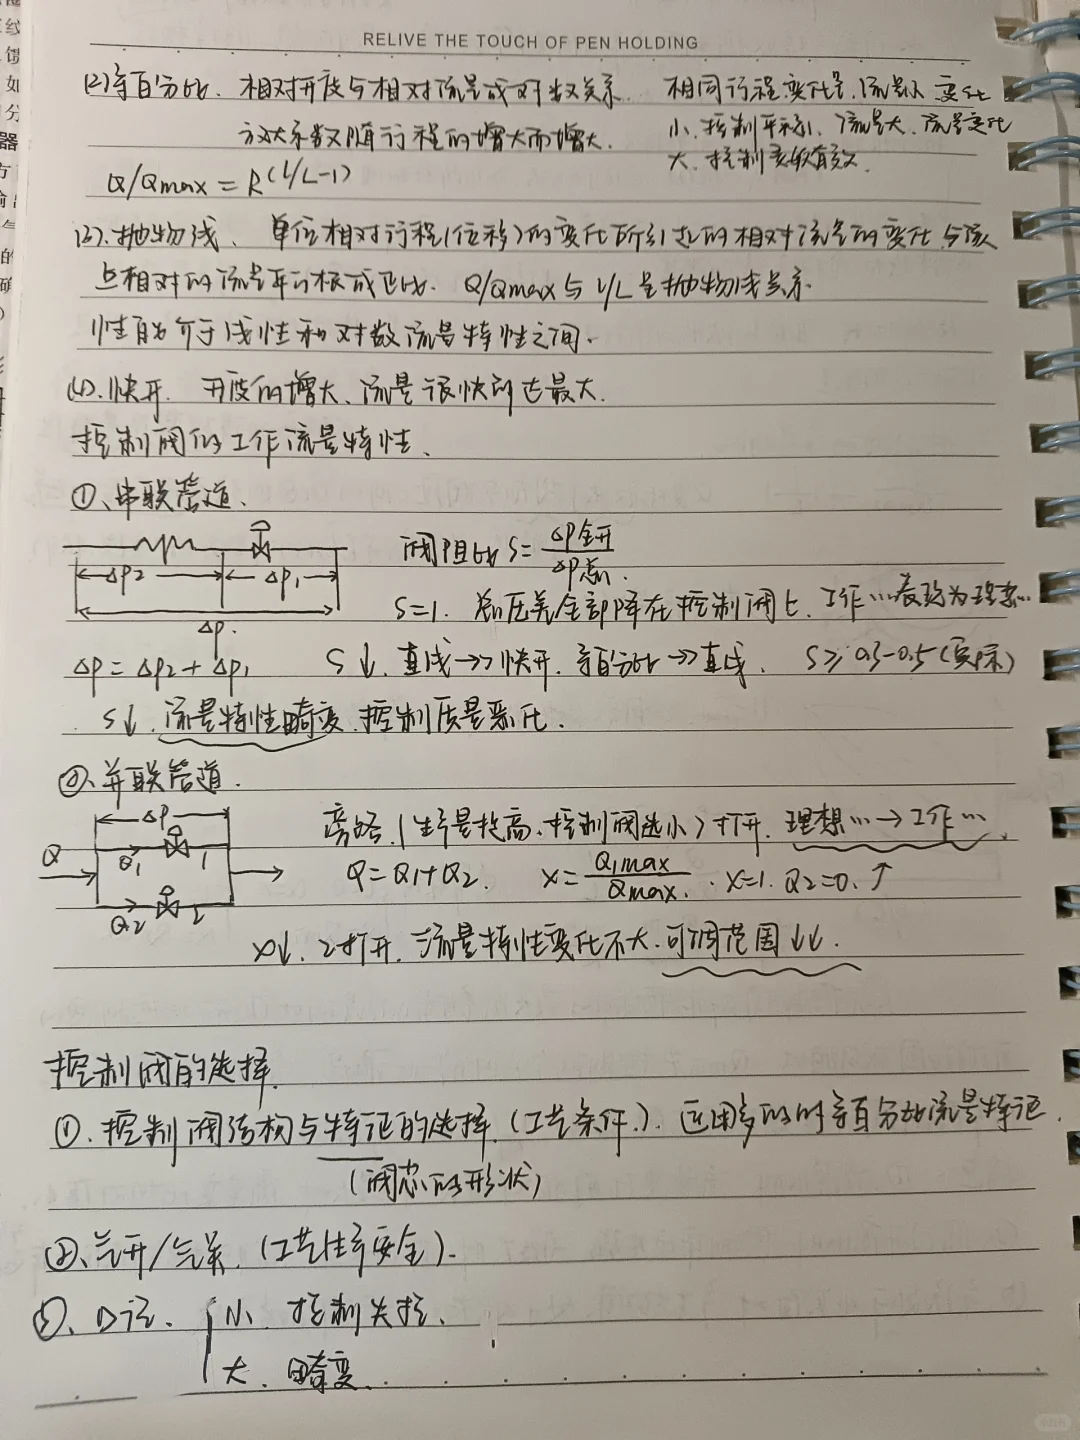 RELIVE THE TOUCH OF PEN HOLDING
(2)等百分比、相对开度与相对流量成对数关系. 相同行程变化量,流量小变化
放大系数随行程的增大而增大. 小、控制平稳、流量大、流量变化
大、控制灵敏有效.
Q/Qmax = R^(l/L-1)
(3).抛物线、单位相对行程(位移)的变化所引起的相对流量的变化与该
点相对的流量平方根成正比. Q/Qmax与 l/L呈抛物线关系.
性能介于线性和对数流量特性之间.
(4).快开. 开度的增大、流量很快到达最大.
控制阀的工作流量特性、
①、串联管道、
阀阻比 S=ΔP全开/ΔP总.
ΔP2 ΔP1
S=1. 总压差全部降在控制阀上、工作…表现为理想…
ΔP.
ΔP = ΔP2 + ΔP1 S↓. 直线→快开、等百分比→直线. S≥0.3-0.5(实际)
S↓. 流量特性畸变、控制质量恶化.
②、并联管道.
ΔP 旁路.(生产量提高、控制阀选小)打开. 理想…→工作….
Q Q1 1 Q=Q1+Q2. x=Q1max/Qmax. x=1. Q2=0.↑
Q2 2
x↓. 2打开. 流量特性变化不大.可调范围↓↓.
控制阀的选择.
①. 控制阀结构与特征的选择.(工艺条件.). 运用多的时等百分比流量特征.
(阀芯的形状)
②、气开/气关.(工艺生产安全).
③、口径. 小、控制失控.
大、畸变.